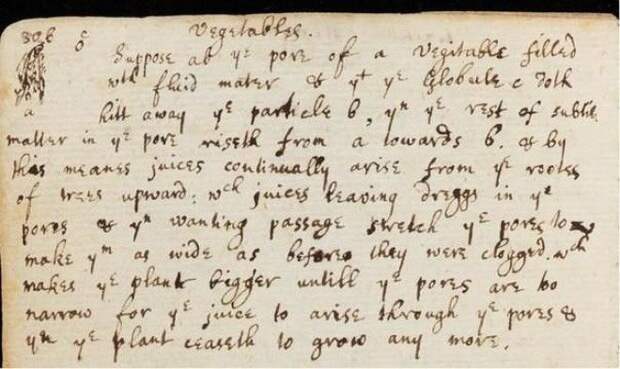 306 Vegetables.
c
b Suppose ab yᵉ pore of a Vegitable filled
wᵗʰ fluid mater & yᵗ yᵉ Globule c doth
a hitt away yᵉ particle b, yⁿ yᵉ rest of subtile
matter in yᵉ pore riseth from a towards b. & by
this meanes juices continually arise from yᵉ rootes
of trees upward: wᶜʰ juices leaving dreggs in yᵉ
pores & yⁿ wanting passage stretch yᵉ pores to
make yᵐ as wide as before they were clogged. wᶜʰ
makes yᵉ plant bigger untill yᵉ pores are too
narrow for yᵉ juice to arise through yᵉ pores &
yⁿ yᵉ plant ceaseth to grow any more.